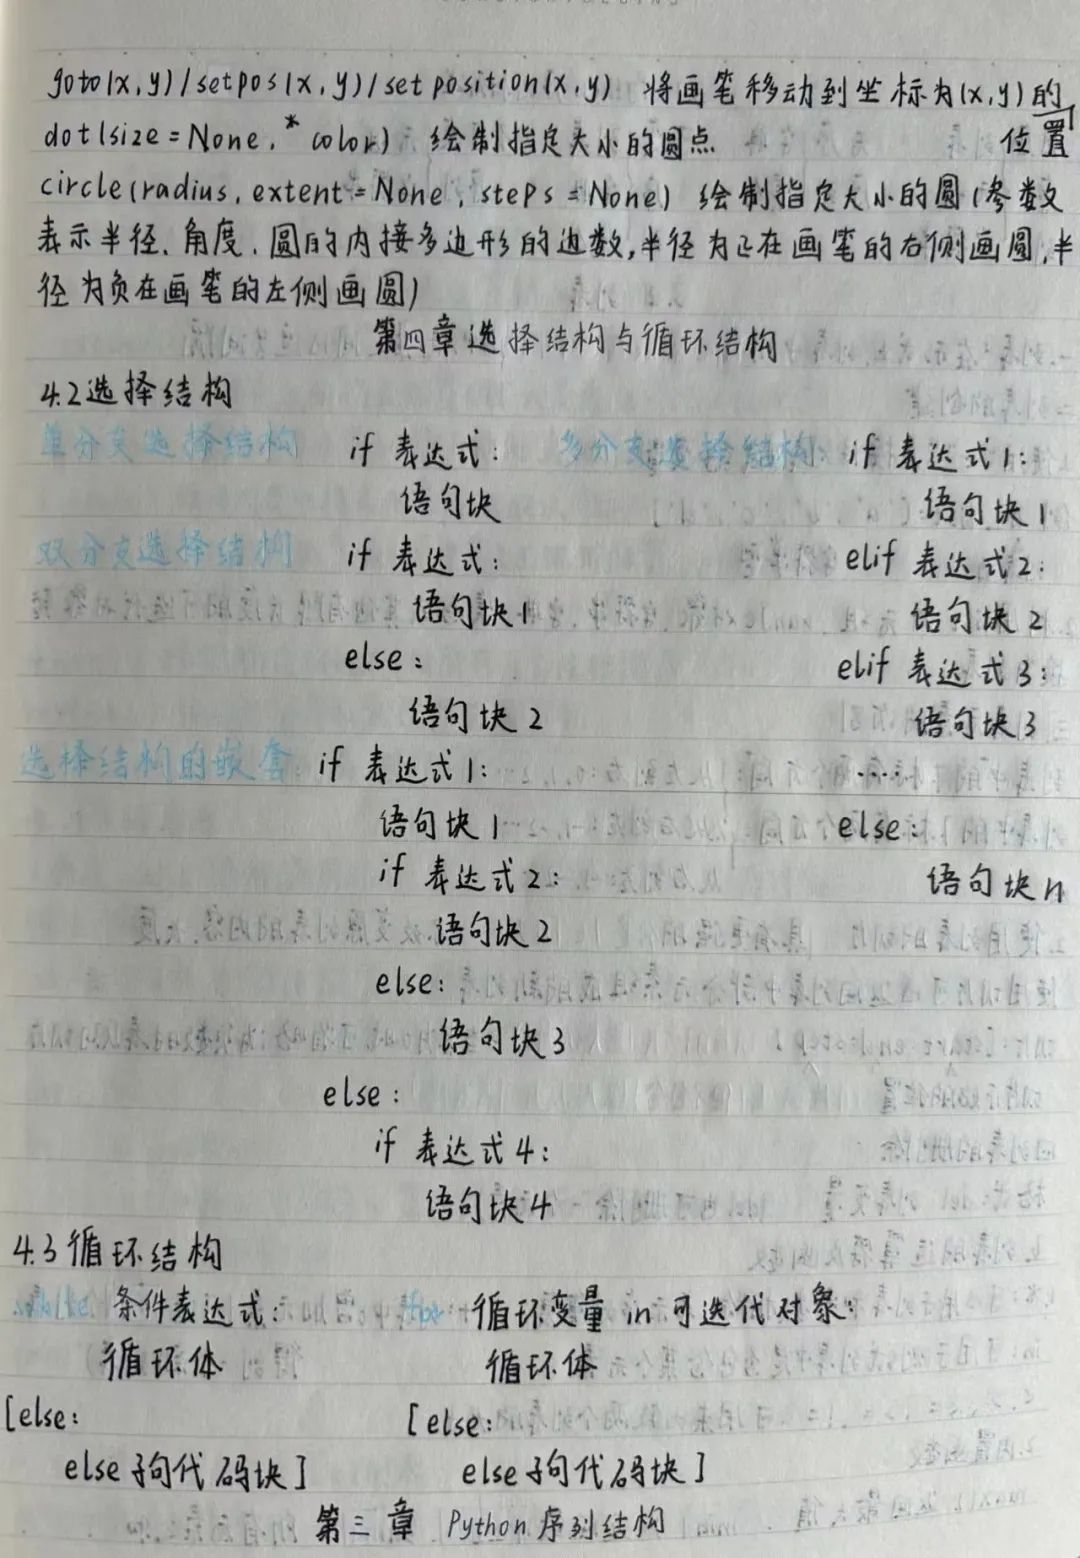 goto(x,y)/setpos(x,y)/setposition(x,y) 将画笔移动到坐标为(x,y)的
位置
dot(size=None,*color) 绘制指定大小的圆点
circle(radius,extent=None,steps=None) 绘制指定大小的圆(参数
表示半径、角度、圆的内接多边形的边数,半径为正在画笔的右侧画圆,半
径为负在画笔的左侧画圆)
第四章选择结构与循环结构
4.2选择结构
单分支选择结构 if 表达式:
语句块
双分支选择结构 if 表达式:
语句块1
else:
语句块2
多分支选择结构: if 表达式1:
语句块1
elif 表达式2:
语句块2
elif 表达式3:
语句块3
......
else:
语句块n
选择结构的嵌套: if 表达式1:
语句块1
if 表达式2:
语句块2
else:
语句块3
else:
if 表达式4:
语句块4
4.3循环结构
条件表达式:
循环体
[else:
else子句代码块]
for 循环变量 in 可迭代对象:
循环体
[else:
else子句代码块]
第三章 Python序列结构